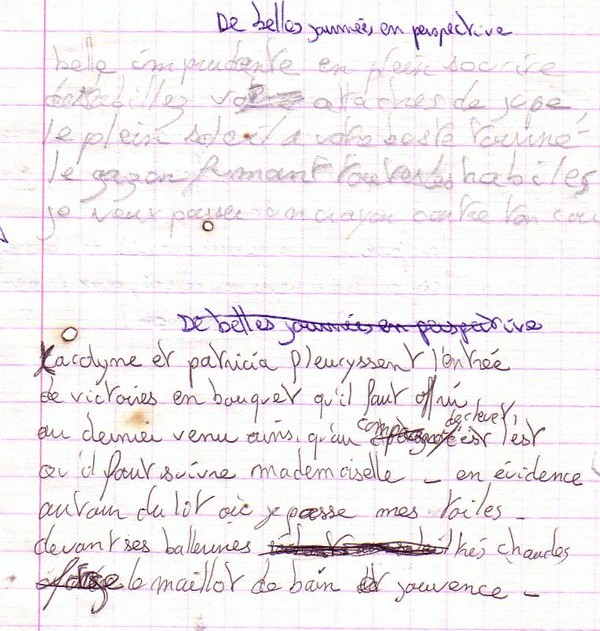 De belles journées en perspective
belle imprudente en plein sourire
attaches de jupe
le plein soleil a votre
le gazon fumant habiles
je veux passer un crayon contre ton cou
De belles journées en perspective
et patricia fleuryssent l'entrée
de victoires en bouquet qu'il faut offrir
au dernier venu ainsi qu'au l'est
qu'il faut suivre mademoiselle - en évidence
autour du lot où je passe mes toiles -
devant ses ballerines très chaudes
le maillot de bain jouvence -